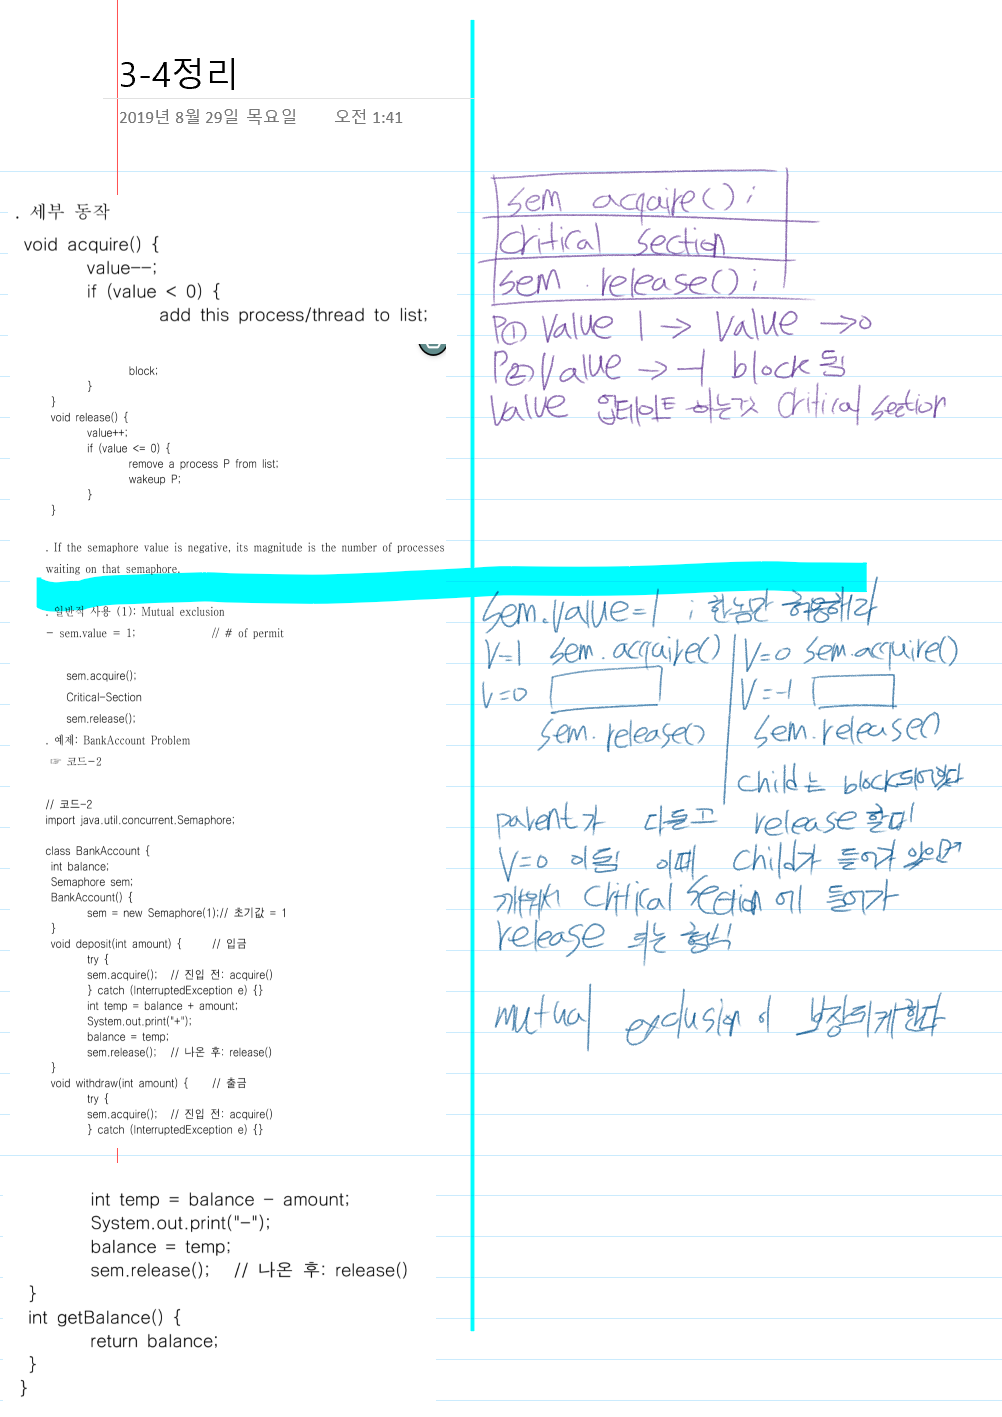 3-4정리
2019년 8월 29일 목요일 오전 1:41
. 세부 동작
void acquire() {
value--;
if (value < 0) {
add this process/thread to list;
block;
}
}
void release() {
value++;
if (value <= 0) {
remove a process P from list;
wakeup P;
}
}
. If the semaphore value is negative, its magnitude is the number of processes
waiting on that semaphore.
. 일반적 사용 (1): Mutual exclusion
- sem.value = 1; // # of permit
sem.acquire();
Critical-Section
sem.release();
. 예제: BankAccount Problem
☞ 코드-2
// 코드-2
import java.util.concurrent.Semaphore;
class BankAccount {
int balance;
Semaphore sem;
BankAccount() {
sem = new Semaphore(1);// 초기값 = 1
}
void deposit(int amount) { // 입금
try {
sem.acquire(); // 진입 전: acquire()
} catch (InterruptedException e) {}
int temp = balance + amount;
System.out.print("+");
balance = temp;
sem.release(); // 나온 후: release()
}
void withdraw(int amount) { // 출금
try {
sem.acquire(); // 진입 전: acquire()
} catch (InterruptedException e) {}
int temp = balance - amount;
System.out.print("-");
balance = temp;
sem.release(); // 나온 후: release()
}
int getBalance() {
return balance;
}
}
sem acquire();
critical section
sem . release();
P① Value 1 → Value → 0
P② Value → -1 block 됨
Value 업데이트 하는것 critical section
sem.value=1 ; 한놈만 허용해라
V=1 sem.acquire() V=0 sem.acquire()
V=0 V=-1
sem.release() sem.release()
child는 block되어있다
parent가 다들고 release 할때
V=0 이됨 이때 child가 들어가 있으면
깨워서 critical section에 들어가
release 되는 형식
mutual exclusion이 보장되게한다